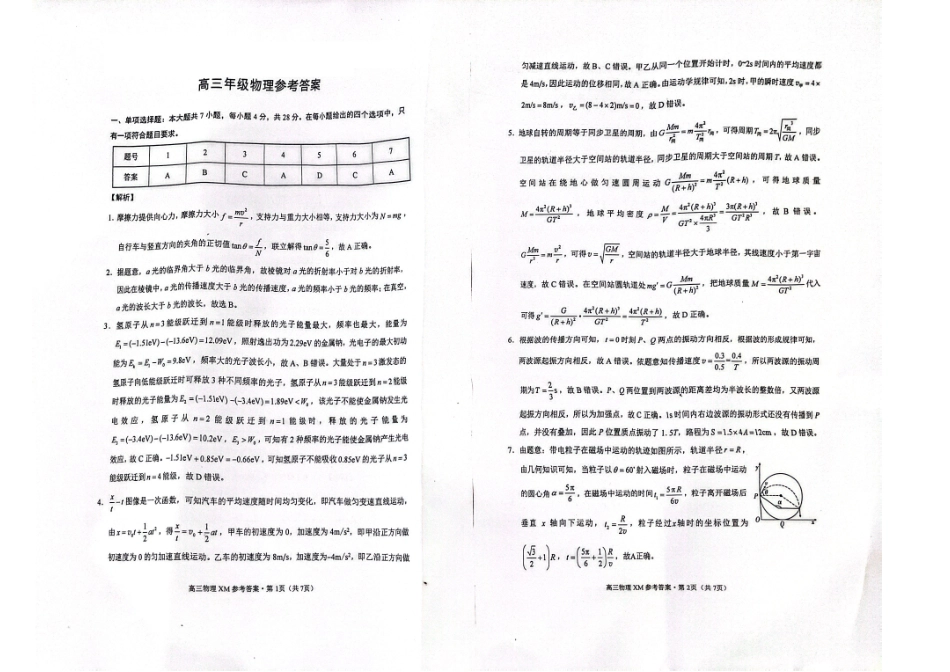 高三年级物理参考答案
一、单项选择题：本大题共7小题，每小题4分，共28分。在每小题给出的四个选项中，只
有一项符合题目要求。
题号 1 2 3 4 5 6 7
答案 A B C A D C A
【解析】
1. 摩擦力提供向心力，摩擦力大小 f=mv²/r，支持力与重力大小相等，支持力大小为 N=mg，
自行车与竖直方向的夹角的正切值 tanθ=f/N，联立解得 tanθ=5/6，故 A 正确。
2. 据题意，a光的临界角大于 b 光的临界角，故棱镜对 a 光的折射率小于对 b 光的折射率，
因此在棱镜中，a 光的传播速度大于 b 光的传播速度，a 光的频率小于 b 光的频率；在真空，
a 光的波长大于 b 光的波长，故选 B。
3. 氢原子从 n=3 能级跃迁到 n=1 能级时释放的光子能量最大，频率也最大，能量为
E₁=(-1.51eV)-(-13.6eV)=12.09eV，照射逸出功为2.29eV的金属钠，光电子的最大初动
能为 Eₖ=E₁-W₀=9.8eV，频率大的光子波长小，故 A、B 错误。大量处于 n=3 激发态的
氢原子向低能级跃迁时可释放 3 种不同频率的光子，氢原子从 n=3 能级跃迁到 n=2 能级
时释放的光子能量为 E₂=(-1.51eV)-(-3.4eV)=1.89eV<W₀，该光子不能使金属钠发生光
电效应，氢原子从 n=2 能级跃迁到 n=1 能级时，释放的光子能量为
E₃=(-3.4eV)-(-13.6eV)=10.2eV，E₃>W₀，可知有 2 种频率的光子能使金属钠产生光电
效应，故 C 正确。-1.51eV+0.85eV=-0.66eV，可知氢原子不能吸收0.85eV的光子从 n=3
能级跃迁到 n=4 能级，故 D 错误。
4. x/t-t 图像是一次函数，可知汽车的平均速度随时间均匀变化，即汽车做匀变速直线运动，
由 x=v₀t+1/2at²，得 x/t=v₀+1/2at，甲车的初速度为 0，加速度为 4m/s²，即甲沿正方向做
初速度为 0 的匀加速直线运动。乙车的初速度为 8m/s，加速度为-4m/s²，即乙沿正方向做
高三物理 XM 参考答案·第 1页（共 7页）
匀减速直线运动，故 B、C 错误。甲乙从同一个位置开始计时，0~2s 时间内的平均速度都
是 4m/s，因此运动的位移相同，故 A 正确。由运动学规律可知，2s 时，甲的瞬时速度 v甲=4×
2m/s=8m/s，v乙=(8-4×2)m/s=0，故 D 错误。
5. 地球自转的周期等于同步卫星的周期，由 G Mm/r同²=m 4π²/T同² r同，可得周期 T同=2π√(r同³/GM)，同步
卫星的轨道半径大于空间站的轨道半径，同步卫星的周期大于空间站的周期 T，故 A 错误。
空间站在绕地心做匀速圆周运动 G Mm/(R+h)²=m 4π²/T²(R+h)，可得地球质量
M=4π²(R+h)³/GT²，地球平均密度 ρ=M/V=4π²(R+h)³/(GT²×4πR³/3)=3π(R+h)³/GT²R³，故 B 错误。
G Mm/r²=m v²/r，可得 v=√(GM/r)，空间站的轨道半径大于地球半径，其线速度小于第一宇宙
速度，故 C 错误。在空间站圆轨道处 mg′=G Mm/(R+h)²，把地球质量 M=4π²(R+h)³/GT² 代入
可得 g′=G/(R+h)²·4π²(R+h)³/GT²=4π²(R+h)/T²，故 D 正确。
6. 根据波的传播方向可知，t=0 时刻 P、Q 两点的振动方向相反，根据波的形成规律可知，
两波源起振方向相反，故 A 错误。依题意知传播速度 v=0.3/0.5=0.4/T，所以两波源的振动周
期为 T=2/3 s，故 B 错误。P、Q 两位置到两波源的距离差均为半波长的整数倍，又两波源
起振方向相反，所以为加强点，故 C 正确。1s 时间内右边波源的振动形式还没有传播到 P
点，并没有叠加，因此 P 位置质点振动了 1.5T，路程为 S=1.5×4A=12cm，故 D 错误。
7. 由题意：带电粒子在磁场中运动的轨迹如图所示，轨道半径 r=R，
由几何知识可知，当粒子以 θ=60°射入磁场时，粒子在磁场中运动
的圆心角 α=5π/6，在磁场中运动的时间 t₁=5πR/6v，粒子离开磁场后
垂直 x 轴向下运动，t₂=R/2v，粒子经过x轴时的坐标位置为
(√3/2+1)R，t=(5π/6+1/2)R/v，故A正确。
y
v
P
θ
α
O
Q
x
高三物理 XM 参考答案·第 2页（共 7页）